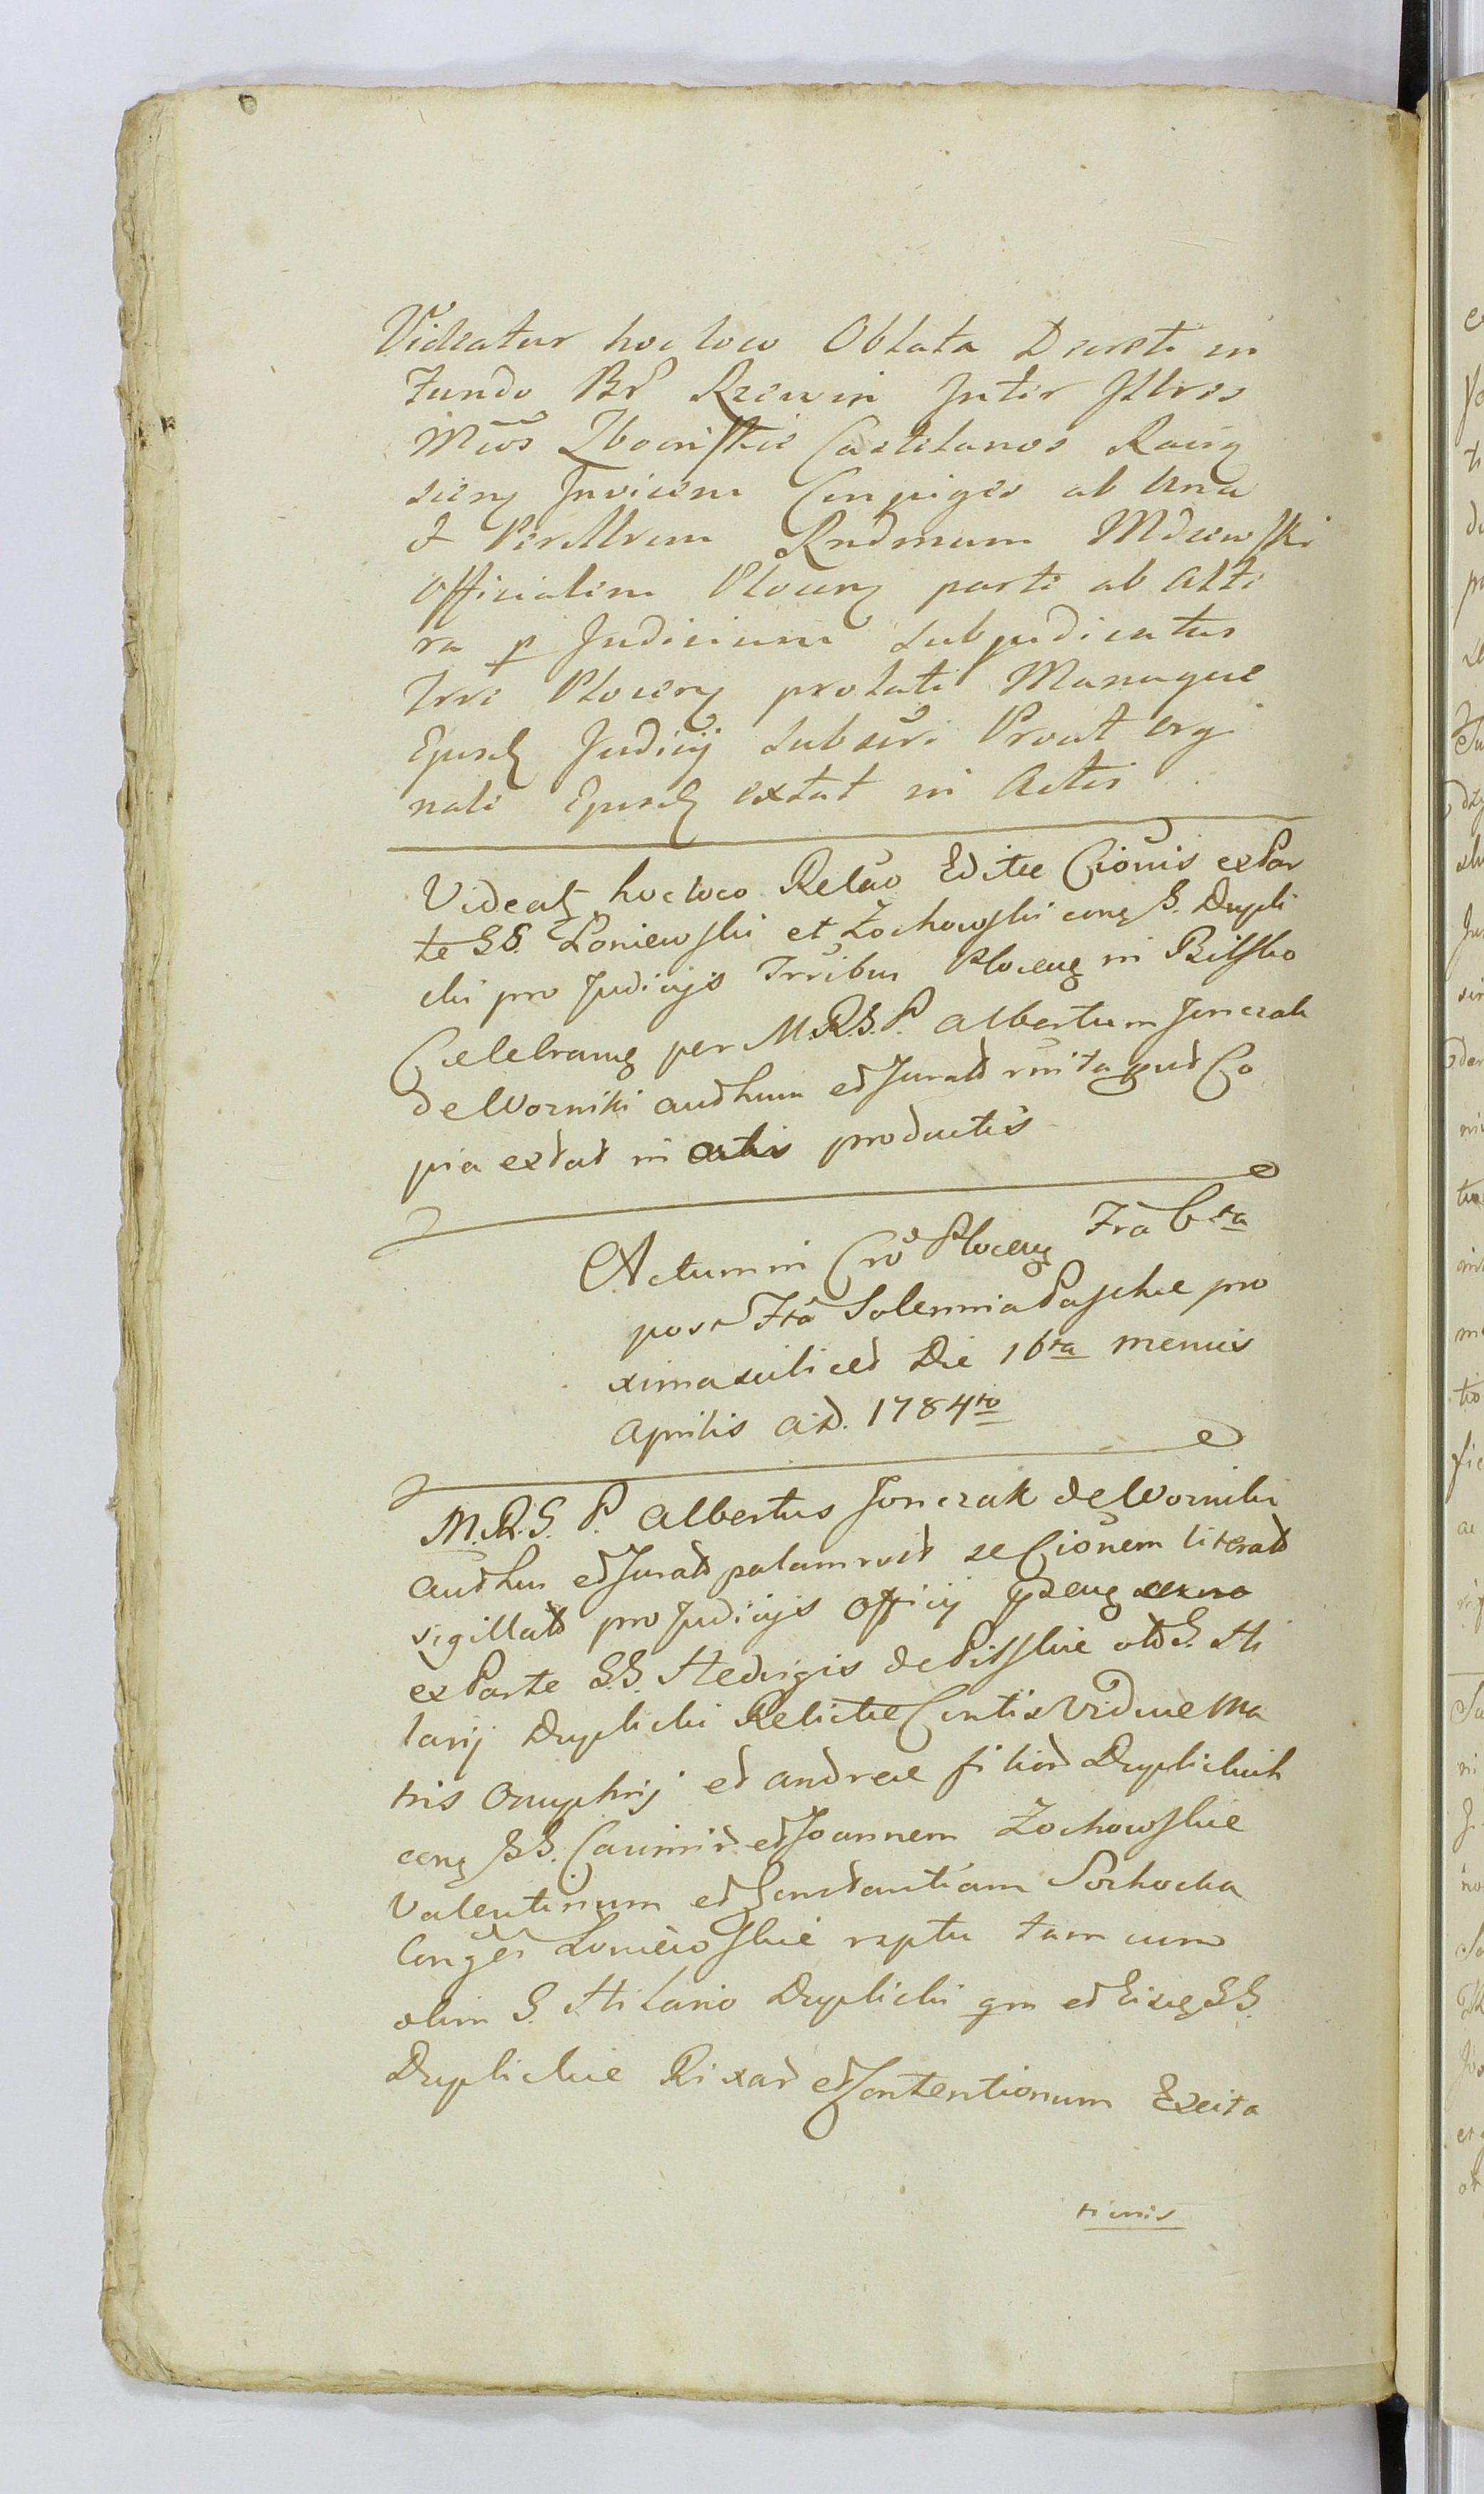 Videatur hoc loco Oblata Decreti in
Fundo Br Rzewin Inter Illres
Mcos Zboinskie Castelanos Raciąż
sieng Invicem Conjuges ab Una
& Perillrem Rndmum Mdzewski
Officialem Ploceng parte ab Alte
ra p Judicium Subjudicatus
Trrē Ploceng prolati Manuque
Ejusd Judicij Subscri Prout orgi
nale Ejusd extat in Actis
Videatg hoc loco Relao Editae Cionis ex Par
te SS. Loniewski et Zochowski cong S. Drupli
cki pro Judicijs Trribus Ploceng in Bilsko
Celebrang per M.R.S.P. Albertum Jonczak
de Worniki authum et Jurato rnita qud Co
pia extat in actis productis
Actum in Cro Ploceng Fra 6ta
post Fta Solennia Paschae pro
xima scilicet Die 16ta mensis
Aprilis A.D. 1784to
M.R.S.P. Albertus Jonczak de Worniki
authus et Jurato palam rcit se Cionem literato
sigillato pro Judicijs Officij
ex Parte SS. Hedvigis de Pilskie olt S. Hi
larij Druplicki Relictae Contis Viduae Ma
tris Onuphrij et Andreae filior Druplickich
cong SS. Casimir et Joannem Zochowskie
Valentinum et Constantiam Sochocka
Conges Loniewskie raptu tam cum
olim S. Hilario Druplicki qm et Eisdg SS.
Druplickie Rixar et Contentionum Excita
tionis